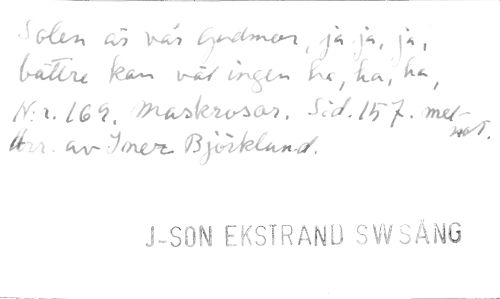 Solen är vår Gudmor, ja, ja, ja,
bättre kan vår ingen ha, ha, ha,
N:r. 169. Maskrosor. Sid. 157. mel-
not.
Arr. av Inez Björklund.
J-SON EKSTRAND SW SÅNG